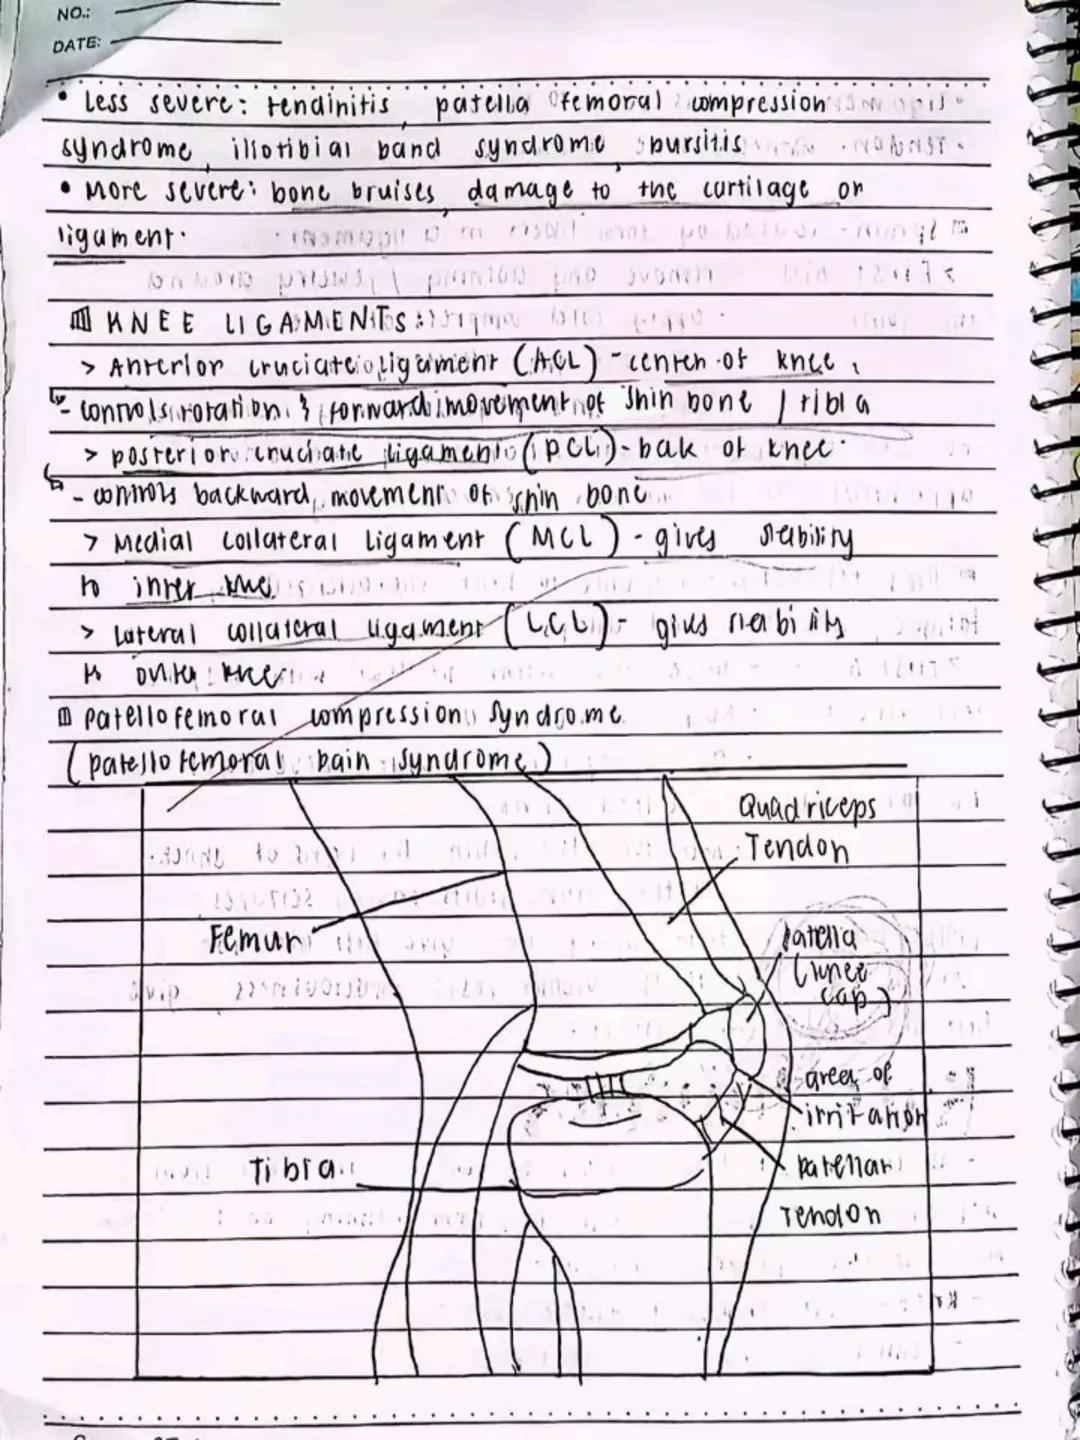 NO.:
DATE:
• Less severe: tendinitis, patella femoral compression
syndrome, illotibial band syndrome, bursitis
• More severe: bone bruises, damage to the cartilage or
ligament.
KNEE LIGAMENTS:
> Anterior cruciate ligament (ACL) - center of knee,
- controls rotation & forward movement of shin bone / tibia
> posterior cruciate ligament (PCL) - bak of knee.
- controls backward movement of shin bone
> Medial collateral ligament (MCL) - gives stability
to inner knee
> Lateral collateral ligament (LCL) - gives stability
to outer knee
Patellofemoral compression syndrome
(patellofemoral pain syndrome)
Quadriceps
Tendon
Femur
Patella
(knee
cap)
area of
irritation
Tibia
patellar
Tendon